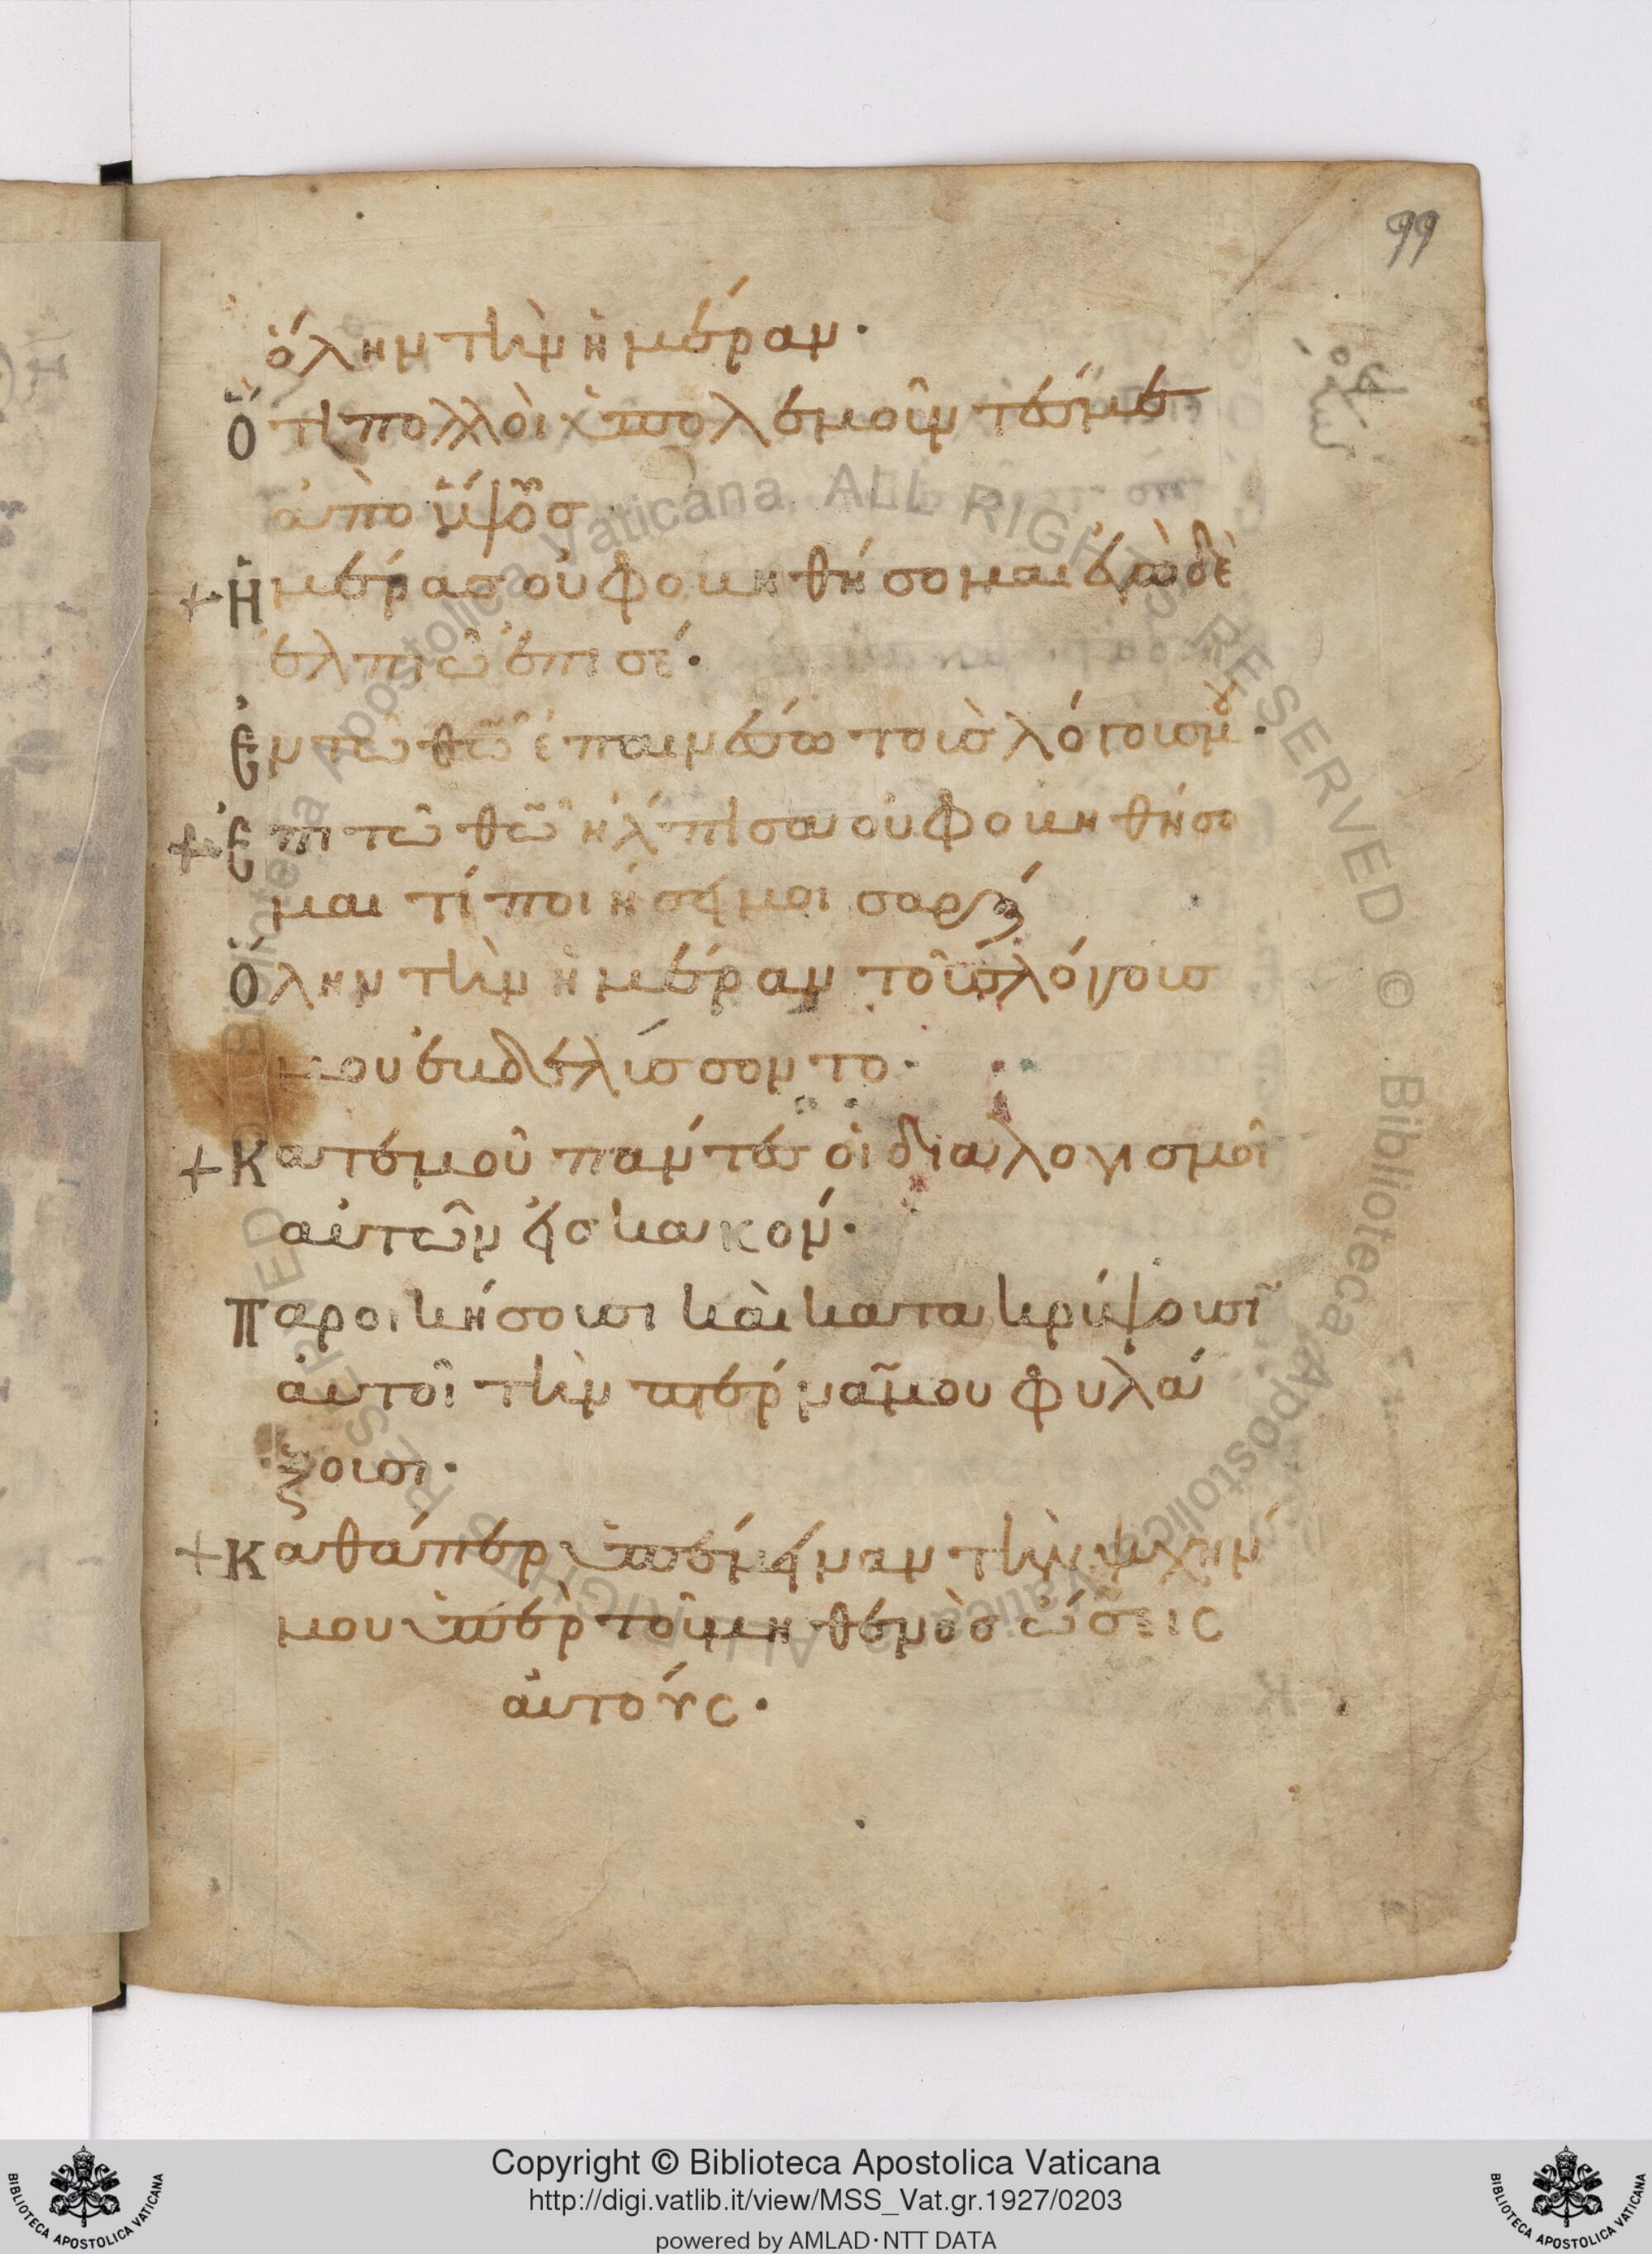 99
ὅλην τὴν ἡμέραν·
Ὅτι πολλοὶ οἱ πολεμοῦντές με
ἀπὸ ὕψους
+Ἡμέρας οὐ φοβηθήσομαι ἐγὼ δὲ
ἐλπιῶ ἐπι σέ·
Ἐν τῶ θῶ ἐπαινέσω τοὺς λόγους μου·
+Ἐπι τῶ θῶ ἤλπισα οὐ φοβηθήσο
μαι τί ποιήσει μοι σάρξ
Ὅλην τὴν ἡμέραν τοὺς λόγους
μου ἐβδελύσσοντο·
+Κατ ἐμοῦ πάντες οἱ διαλογισμοὶ
αὐτῶν εἰς κακόν·
Παροικήσουσι καὶ κατακρύψουσι
αὐτοὶ τὴν πτέρναν μου φυλά
ξουσι·
+Καθάπερ ὑπέμειναν τὴν ψυχήν
μου ὑπὲρ τοῦ μηθενὸς σώσεις
αὐτούς·
Copyright © Biblioteca Apostolica Vaticana
http://digi.vatlib.it/view/MSS_Vat.gr.1927/0203
powered by AMLAD·NTT DATA
BIBLIOTECA APOSTOLICA VATICANA
BIBLIOTECA APOSTOLICA VATICANA
Biblioteca Apostolica Vaticana, ALL RIGHTS RESERVED © Biblioteca Apostolica Vaticana, ALL RIGHTS RESERVED ©